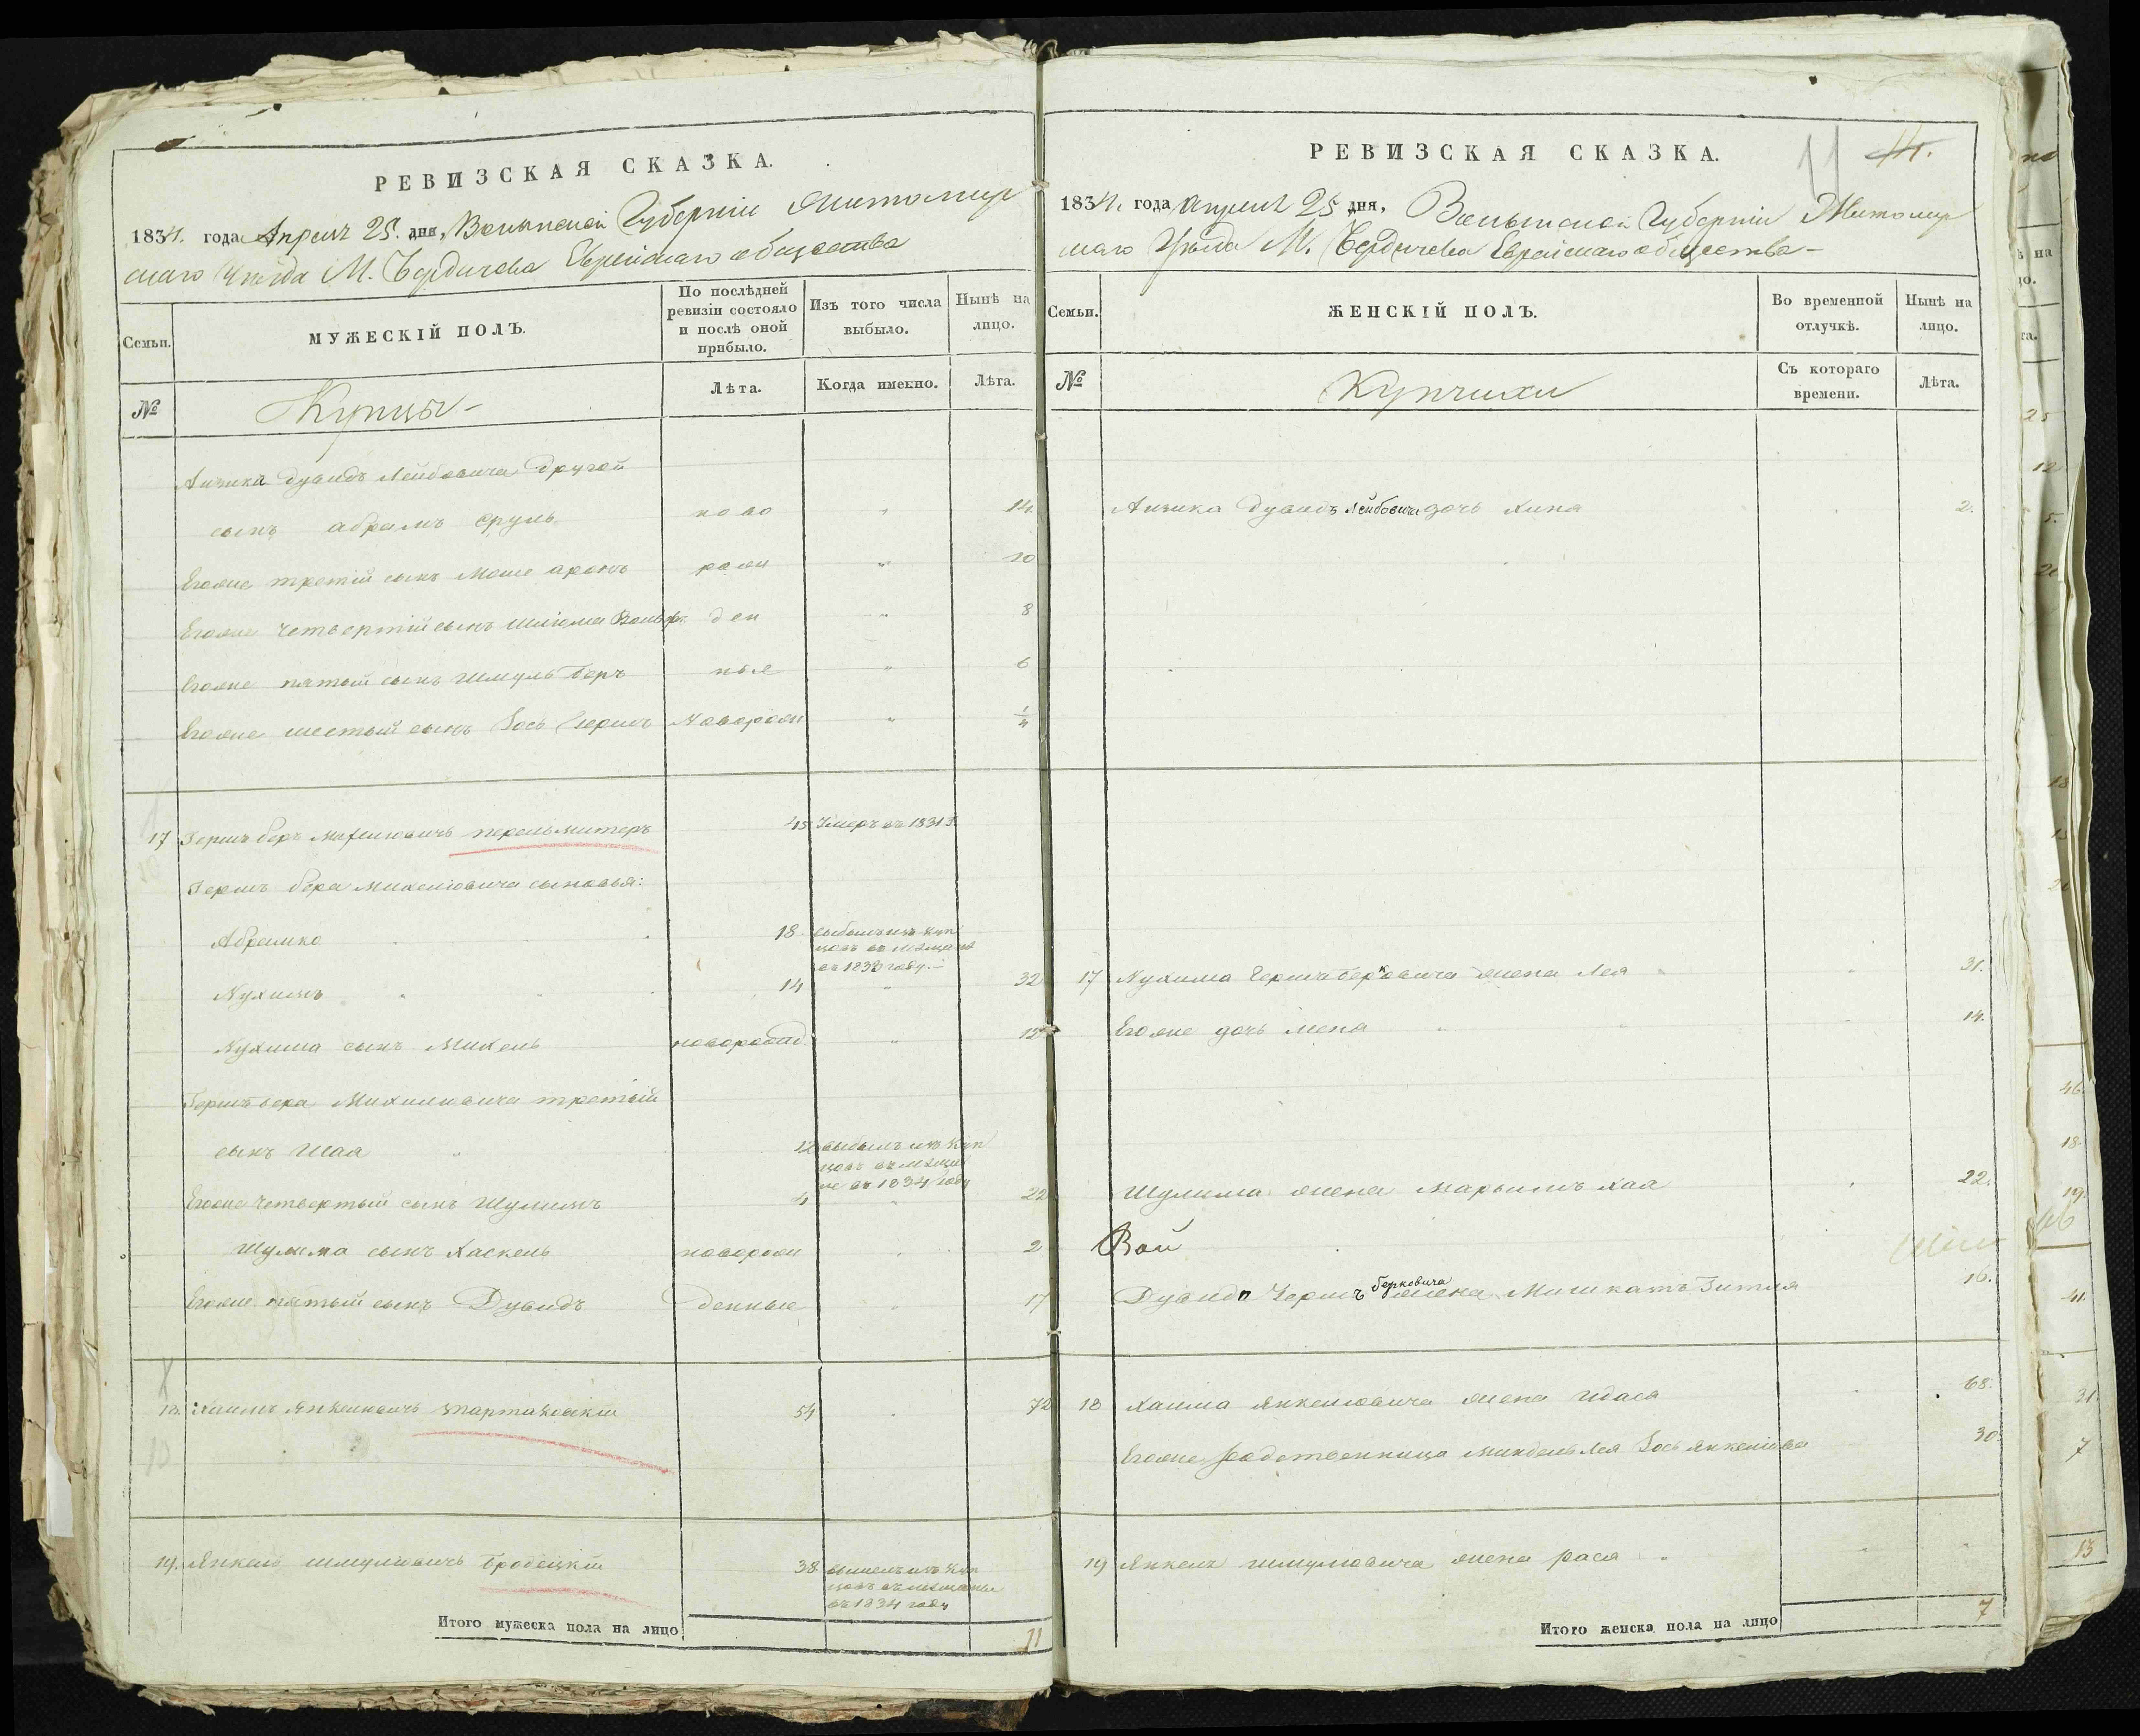 РЕВИЗСКАЯ СКАЗКА.
1834. года Апреля 25. дня, Волынской Губернiи Житомир
скаго Уѣзда М. Бердичева Еврейскаго общества
Семьи.
МУЖЕСКІЙ ПОЛЪ.
По послѣдней ревизіи состояло и послѣ оной прибыло.
Изъ того числа выбыло.
Нынѣ на лицо.
№
Купцы
Лѣта.
Когда именно.
Лѣта.
Аизика Дувидъ Лейбовича другой
сынъ абрамъ сруль ново " 14.
Егоже третiй сынъ Моше аронъ рож " 10
Егоже четвертiй сынъ Шлiома Вольф. ден " 8
Егоже пятый сынъ Шмуль беръ ные " 6
Егоже шестый сынъ Iось Гершъ Новорож " 1/4
17 Гершъ беръ Михелiовичъ перельмитеръ 45 Умеръ въ 1831 г.
Гершъ бера Михелiовича сыновья:
Абрамко 18. выбылъ изъ куп
цовъ въ мѣщане
въ 1833 году.
Нухимъ 14 " 32
Нухима сынъ Михель новорожд. " 12
Гершъ бера Михилiовича третiй
сынъ Шая 12 выбылъ изъ куп
цовъ въ мѣща
не въ 1834 году
Егоже четвертый сынъ Шулимъ 4 22
Шулима сынъ Хаскель новорож 2
Егоже пятый сынъ Дувидъ денные 17
18. Хаимъ Янкелiовичъ 54 72
19. Янкель Шмулiовичъ бродецкiй 38. выбылъ изъ куп
цовъ въ мѣщаны
въ 1834 году
Итого мужеска пола на лицо 11
РЕВИЗСКАЯ СКАЗКА.
11 14.
1834. года апреля 25 дня, Волынской Губернiи Житомир
скаго Уѣзда М. Бердичева Еврейскаго общества
Семьи.
ЖЕНСКІЙ ПОЛЪ.
Во временной отлучкѣ.
Нынѣ на лицо.
№
Купчихи
Съ котораго времени.
Лѣта.
Аизика Дувидъ Лейбовича дочь Хина 2.
17 Нухима Гершъ берковича жена Лея 31.
Егоже дочь Мена 14.
Шулима жена Марьямъ хая 22.
Дувида Гершъ берковича жена Гитля 16.
18 Хаима Янкелiовича жена Идася 68.
Егоже родственница Миндель Лея Iось Янкелiова 30.
19 Янкель Шмулiовича жена рася " "
Итого женска пола на лицо 7